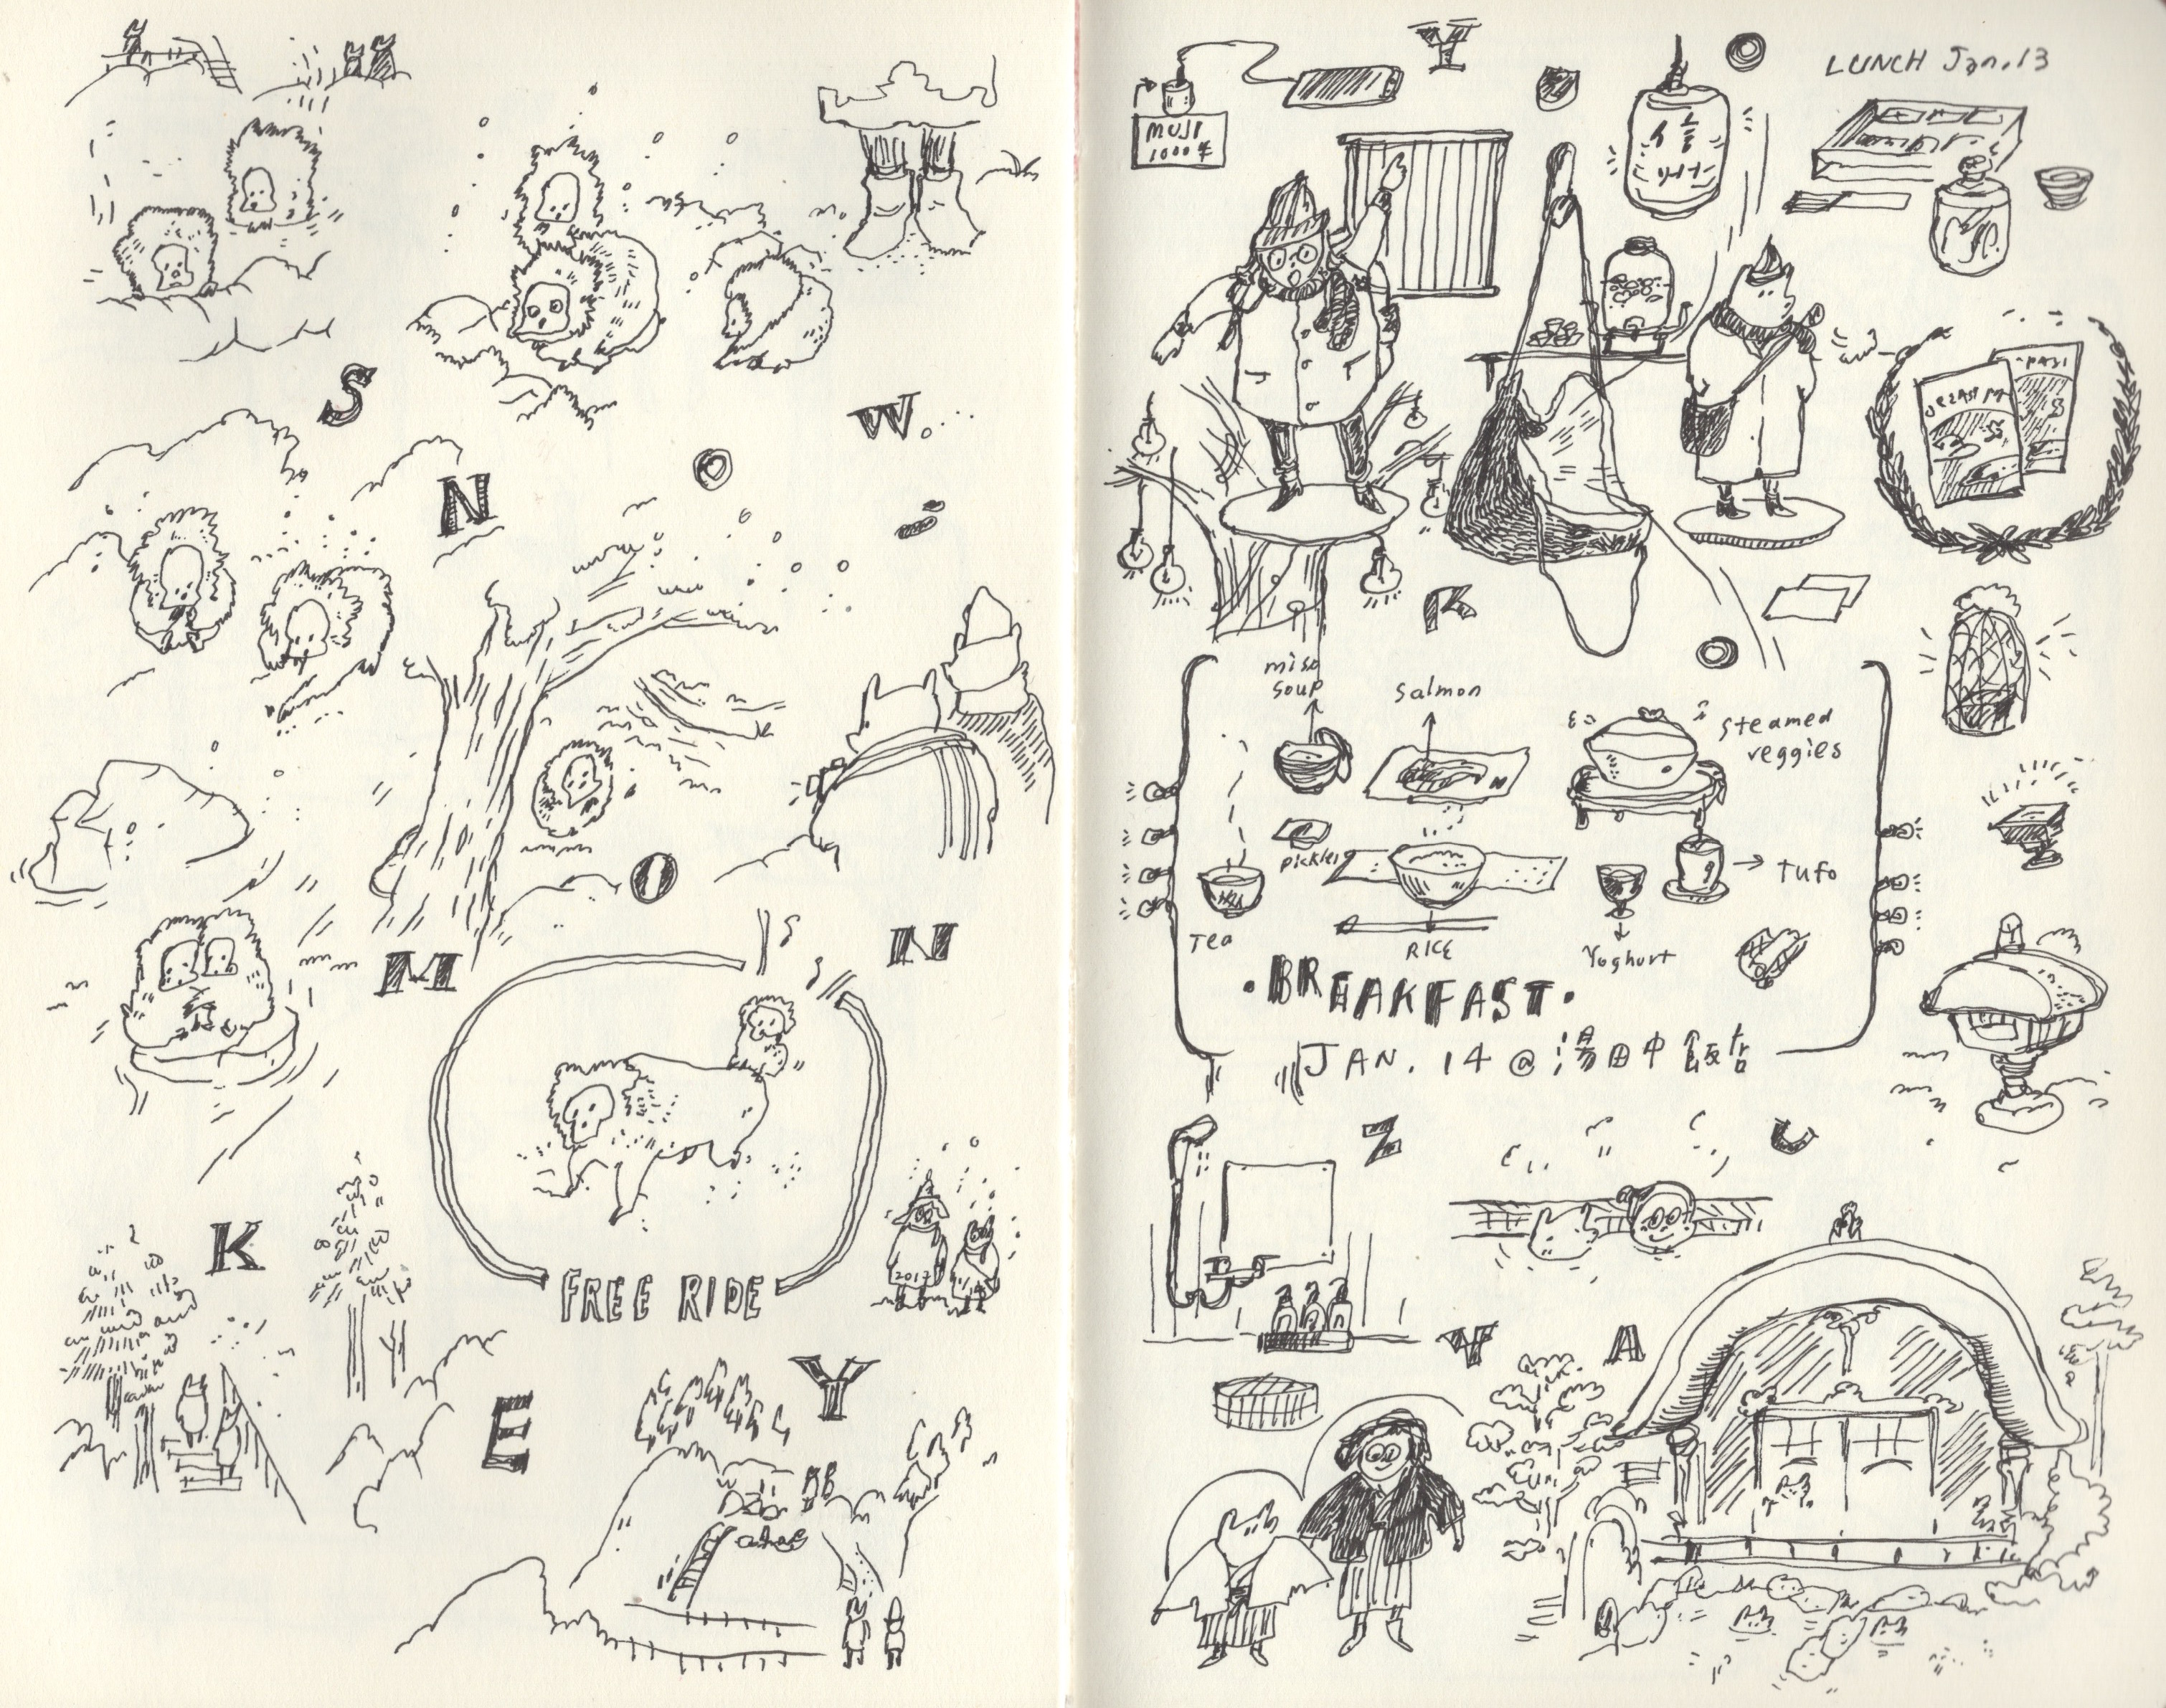 S
N
O
W
-
M
O
N
K
E
Y
FREE RIDE
2017
Y
O
LUNCH Jan.13
MUJI
1000¥
K
O
miso
soup
salmon
steamed
veggies
pickles
Tufo
Tea
RICE
Yoghurt
·BREAKFAST·
JAN. 14 @ 湯田中飯店
Z
U
Y
A